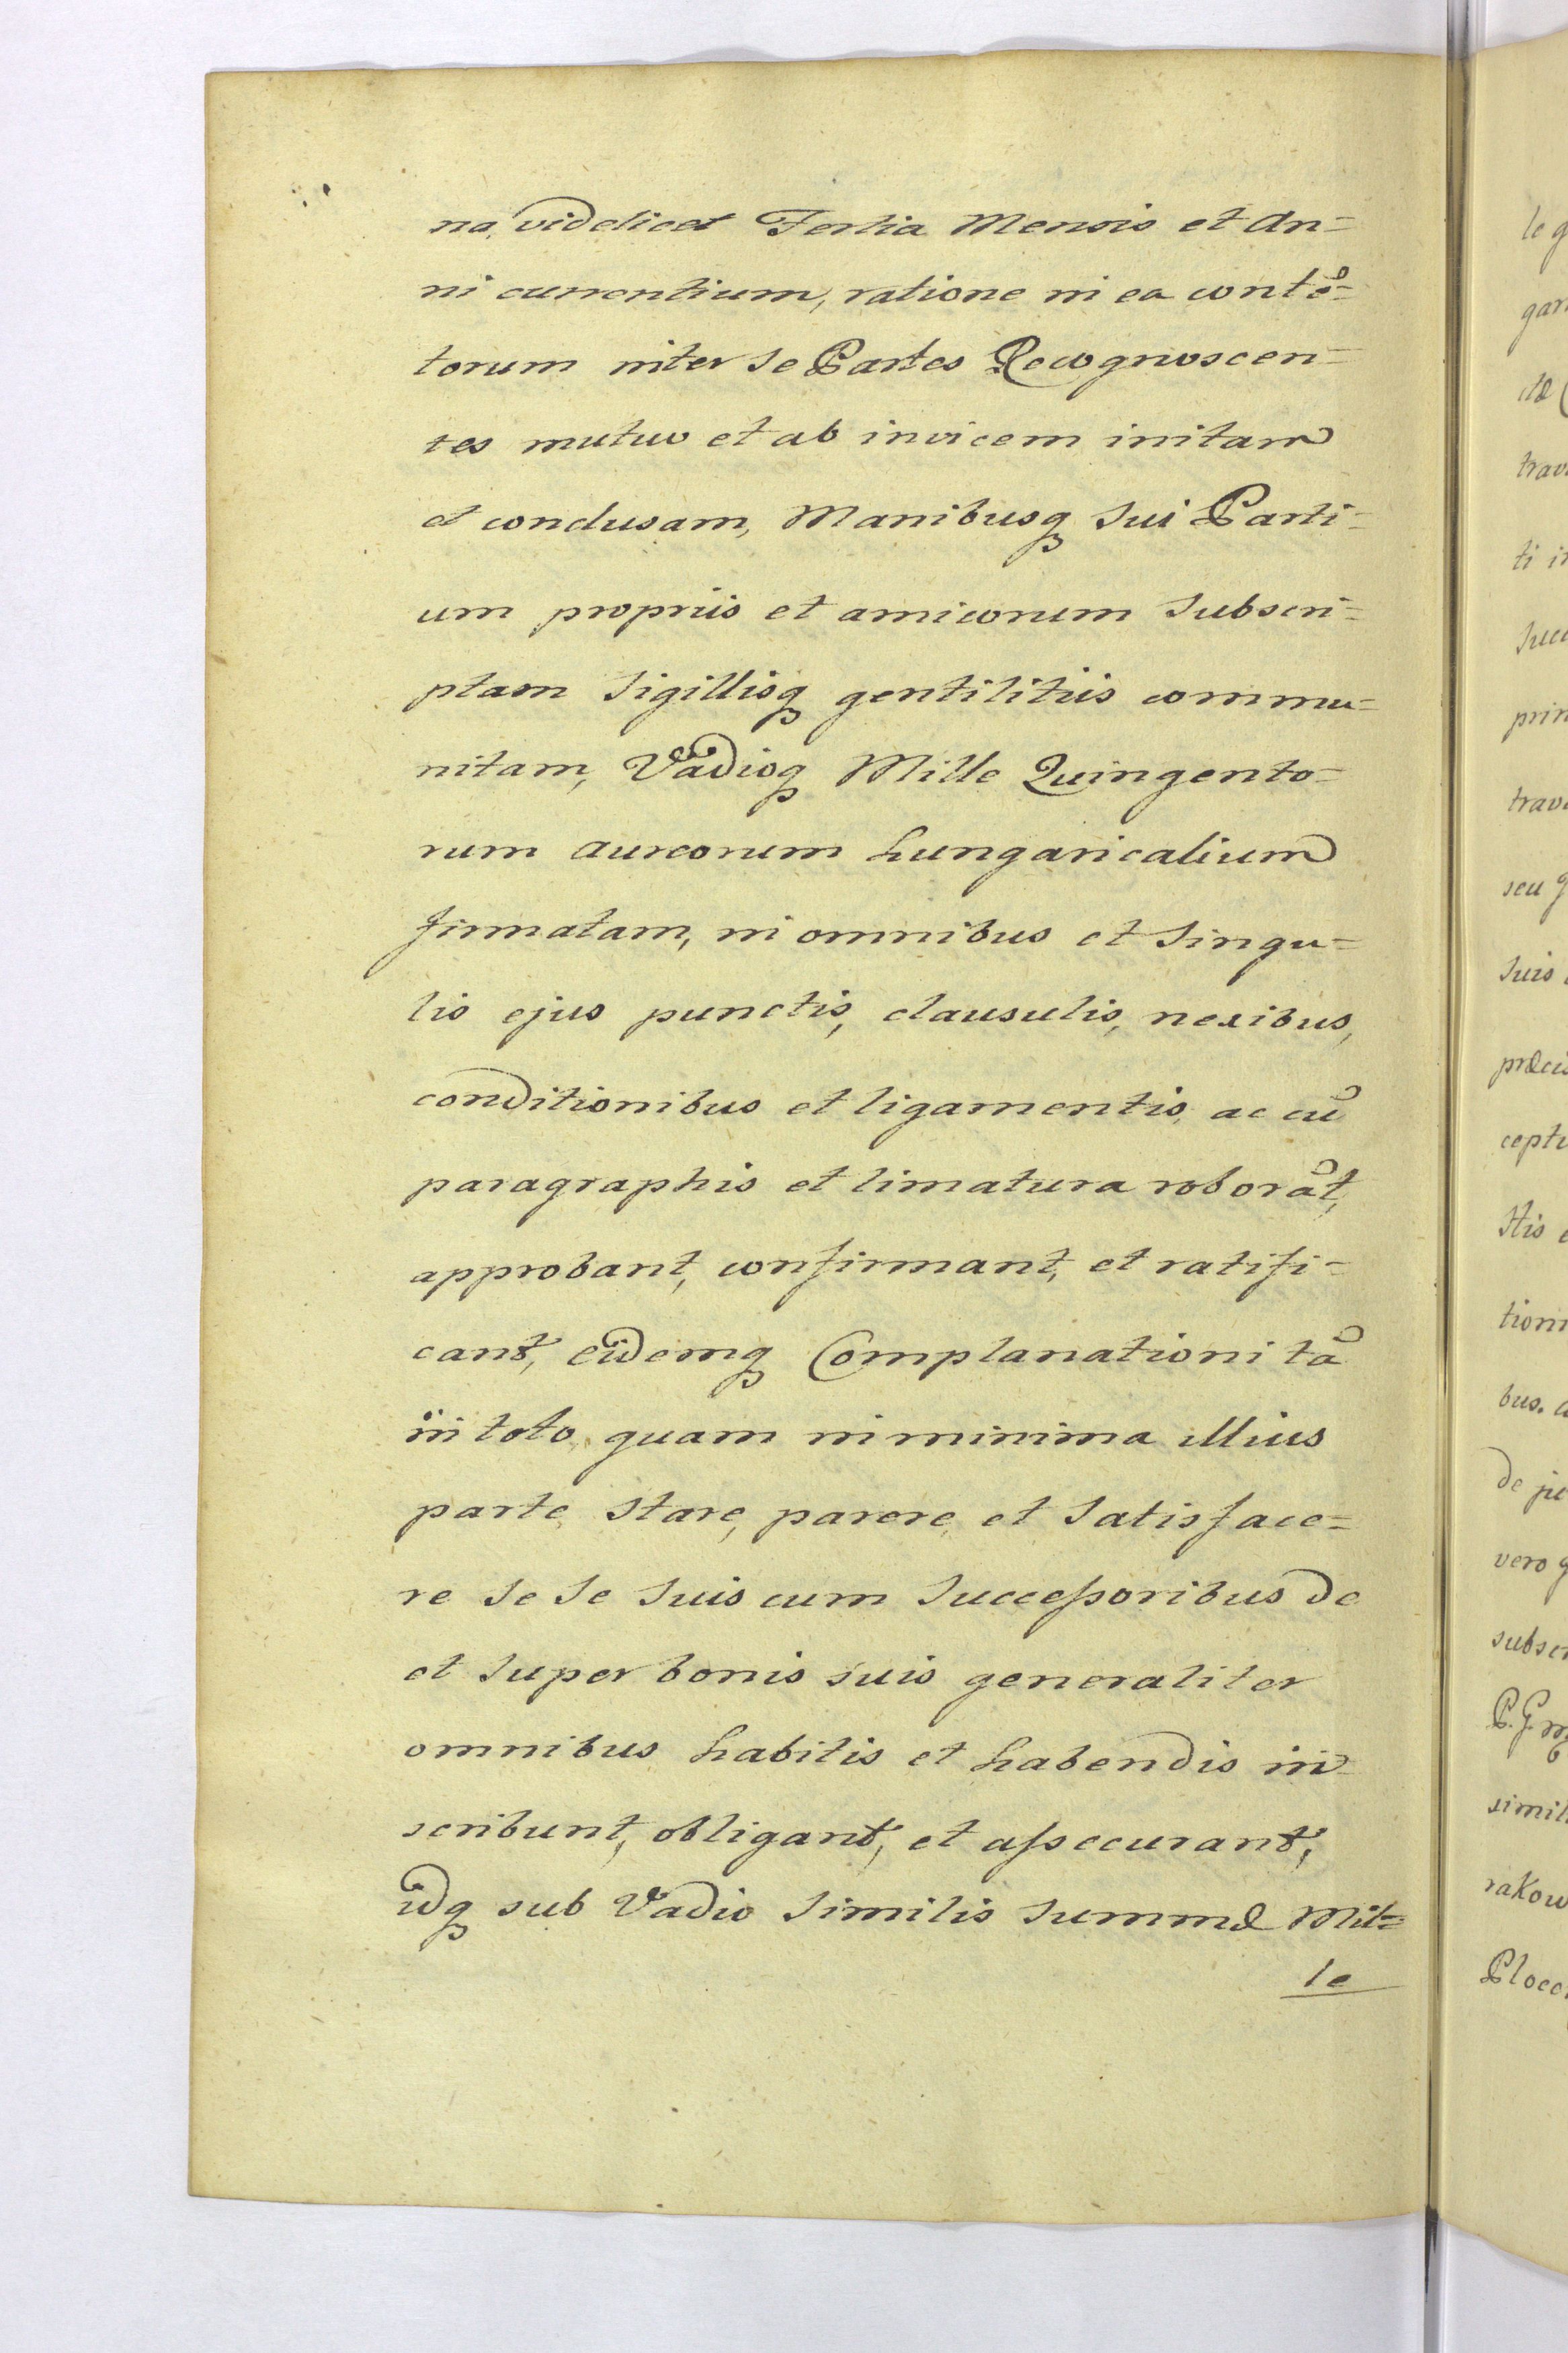 na, videlicet Tertia Mensis et An=
ni currentium, ratione in ea conte͂=
torum inter se Partes Recognoscen=
tes mutuo et ab invicem initam
et conclusam, Manibusq̃ sui Parti=
um propriis et amicorum subscri=
ptam Sigillisq̃ gentilitiis commu=
nitam, Vadioq̃ Mille Quingento=
rum aureorum hungaricalium
firmatam, in omnibus et singu=
lis ejus punctis, clausulis, nexibus,
conditionibus et ligamentis, ac cũ
paragraphis et limatura roborãt,
approbant, confirmant, et ratifi=
cant, eidemq̃ Complanationi tã
in toto, quam in minima illius
parte, stare, parere, et satisface=
re se se suis cum Successoribus de
et super bonis suis generaliter
omnibus habitis et habendis in=
scribunt, obligant, et assecurant,
idq̃ sub Vadio similis summæ Mil=
le